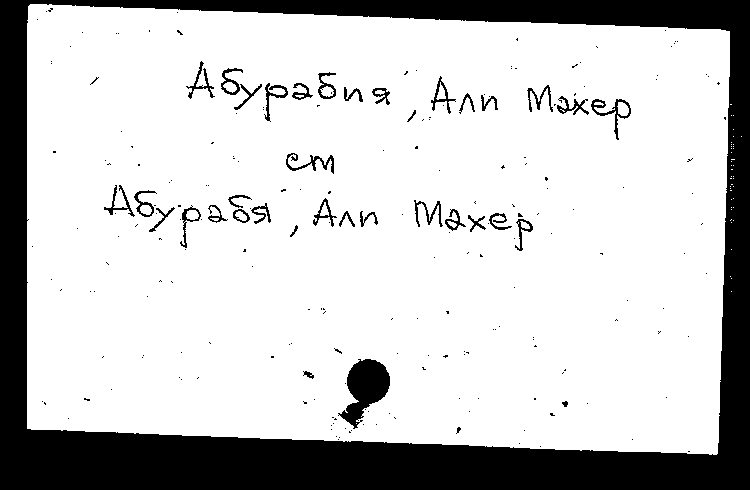 Абурабия, Али Махер
ст
Абурабя, Али Махер